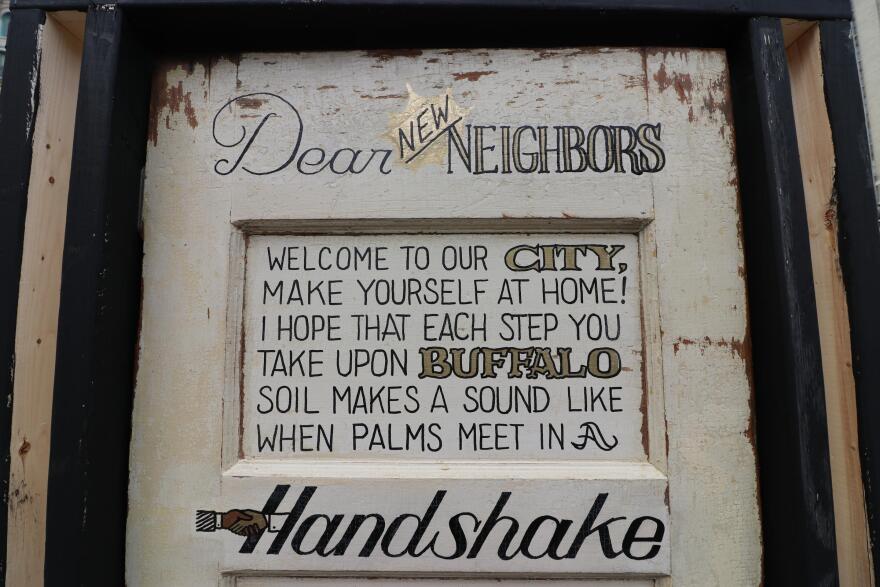 Dear NEW NEIGHBORS
WELCOME TO OUR CITY,
MAKE YOURSELF AT HOME!
I HOPE THAT EACH STEP YOU
TAKE UPON BUFFALO
SOIL MAKES A SOUND LIKE
WHEN PALMS MEET IN A
Handshake